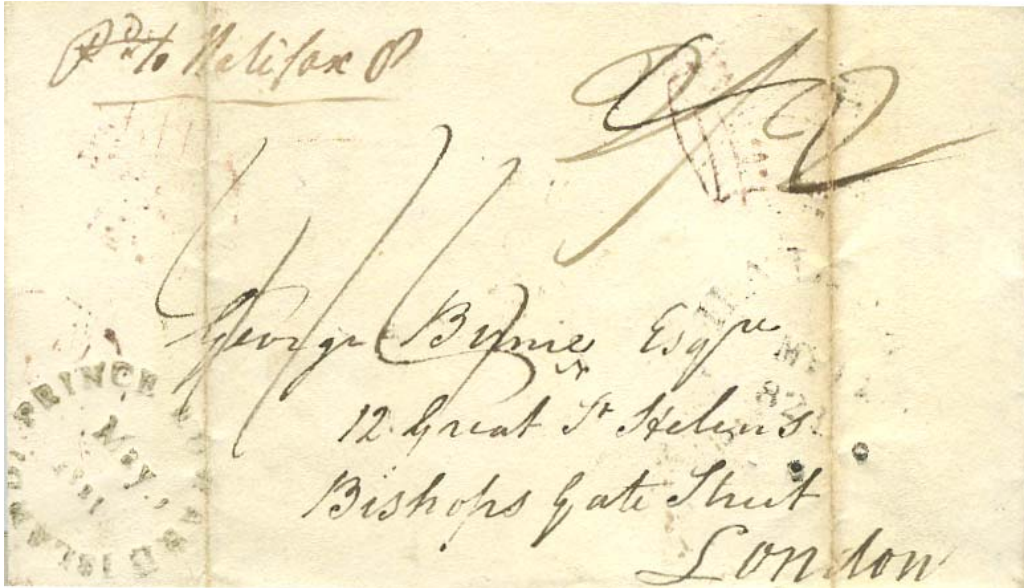 Pd to Halifax 8
George Byrne Esqre
12 Great St Helens
Bishops Gate Street
London
PRINCE EDWARD ISLAND
May